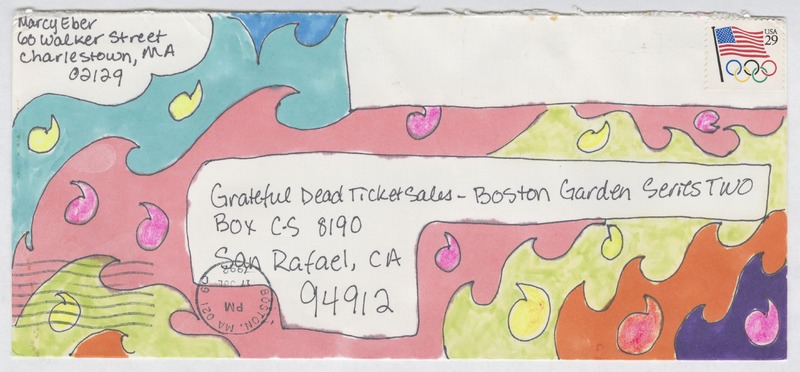 Marcy Eber
60 Walker Street
Charlestown, MA
02129
USA
29
Grateful Dead Ticket Sales - Boston Garden Series Two
Box C-S 8190
San Rafael, CA
94912
BOSTON, MA 021
PM
17 JUL
1992